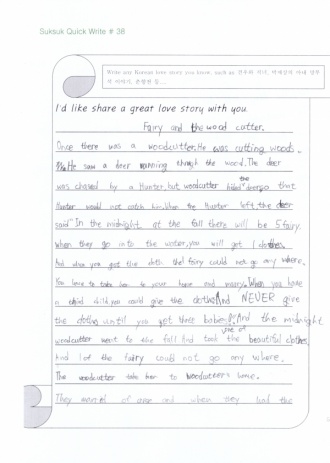 Suksuk Quick Write # 38
Write any Korean love story you know, such as 견우와 직녀, 박제상의 아내 설부
의 이야기, 춘향전 등...
I'd like share a great love story with you
Fairy and the wood cutter.
Once there was a woodcutter. He was cutting woods.
He saw a deer running through the wood. The deer
was chased by a Hunter, but woodcutter hided the deer so that
Hunter would not catch him. When the Hunter left, the deer
said "In the midnight, at the fall there will be 5 fairy.
When they go into the water, you will get 1 clothes.
And when you got the cloth the 1 fairy could not go any where.
You have to take her to your home and marry. When you have
a child you could give the clothes And NEVER give
the clothes until you get three babies. And the midnight
woodcutter went to the fall And took one of the beautiful clothes
And 1 of the fairy could not go any where.
The woodcutter take her to woodcutter's home.
They married and when they had the